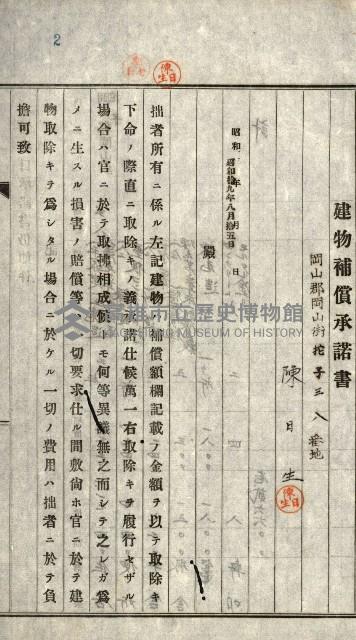 2
建物補償承諾書
岡山郡岡山街拕子三八番地
陳日生
陳日生
昭和 年 月 日
昭和拾九年八月拾五日
殿
拙者所有ニ係ル左記建物ノ補償額欄記載ノ金額ヲ以テ取除キ
下命ノ際直ニ取除キノ義承諾仕候萬一右取除キヲ履行セザル
場合ハ官ニ於テ取拂相成候トモ何等異議無之而シテ之レガ爲
メニ生スル損害ノ賠償等ハ一切要求仕ル間敷尙ホ官ニ於テ建
物取除キヲ爲シタル場合ニ於ケル一切ノ費用ハ拙者ニ於テ負
擔可致
陳日生
高雄市立歷史博物館
KAOHSIUNG MUSEUM OF HISTORY